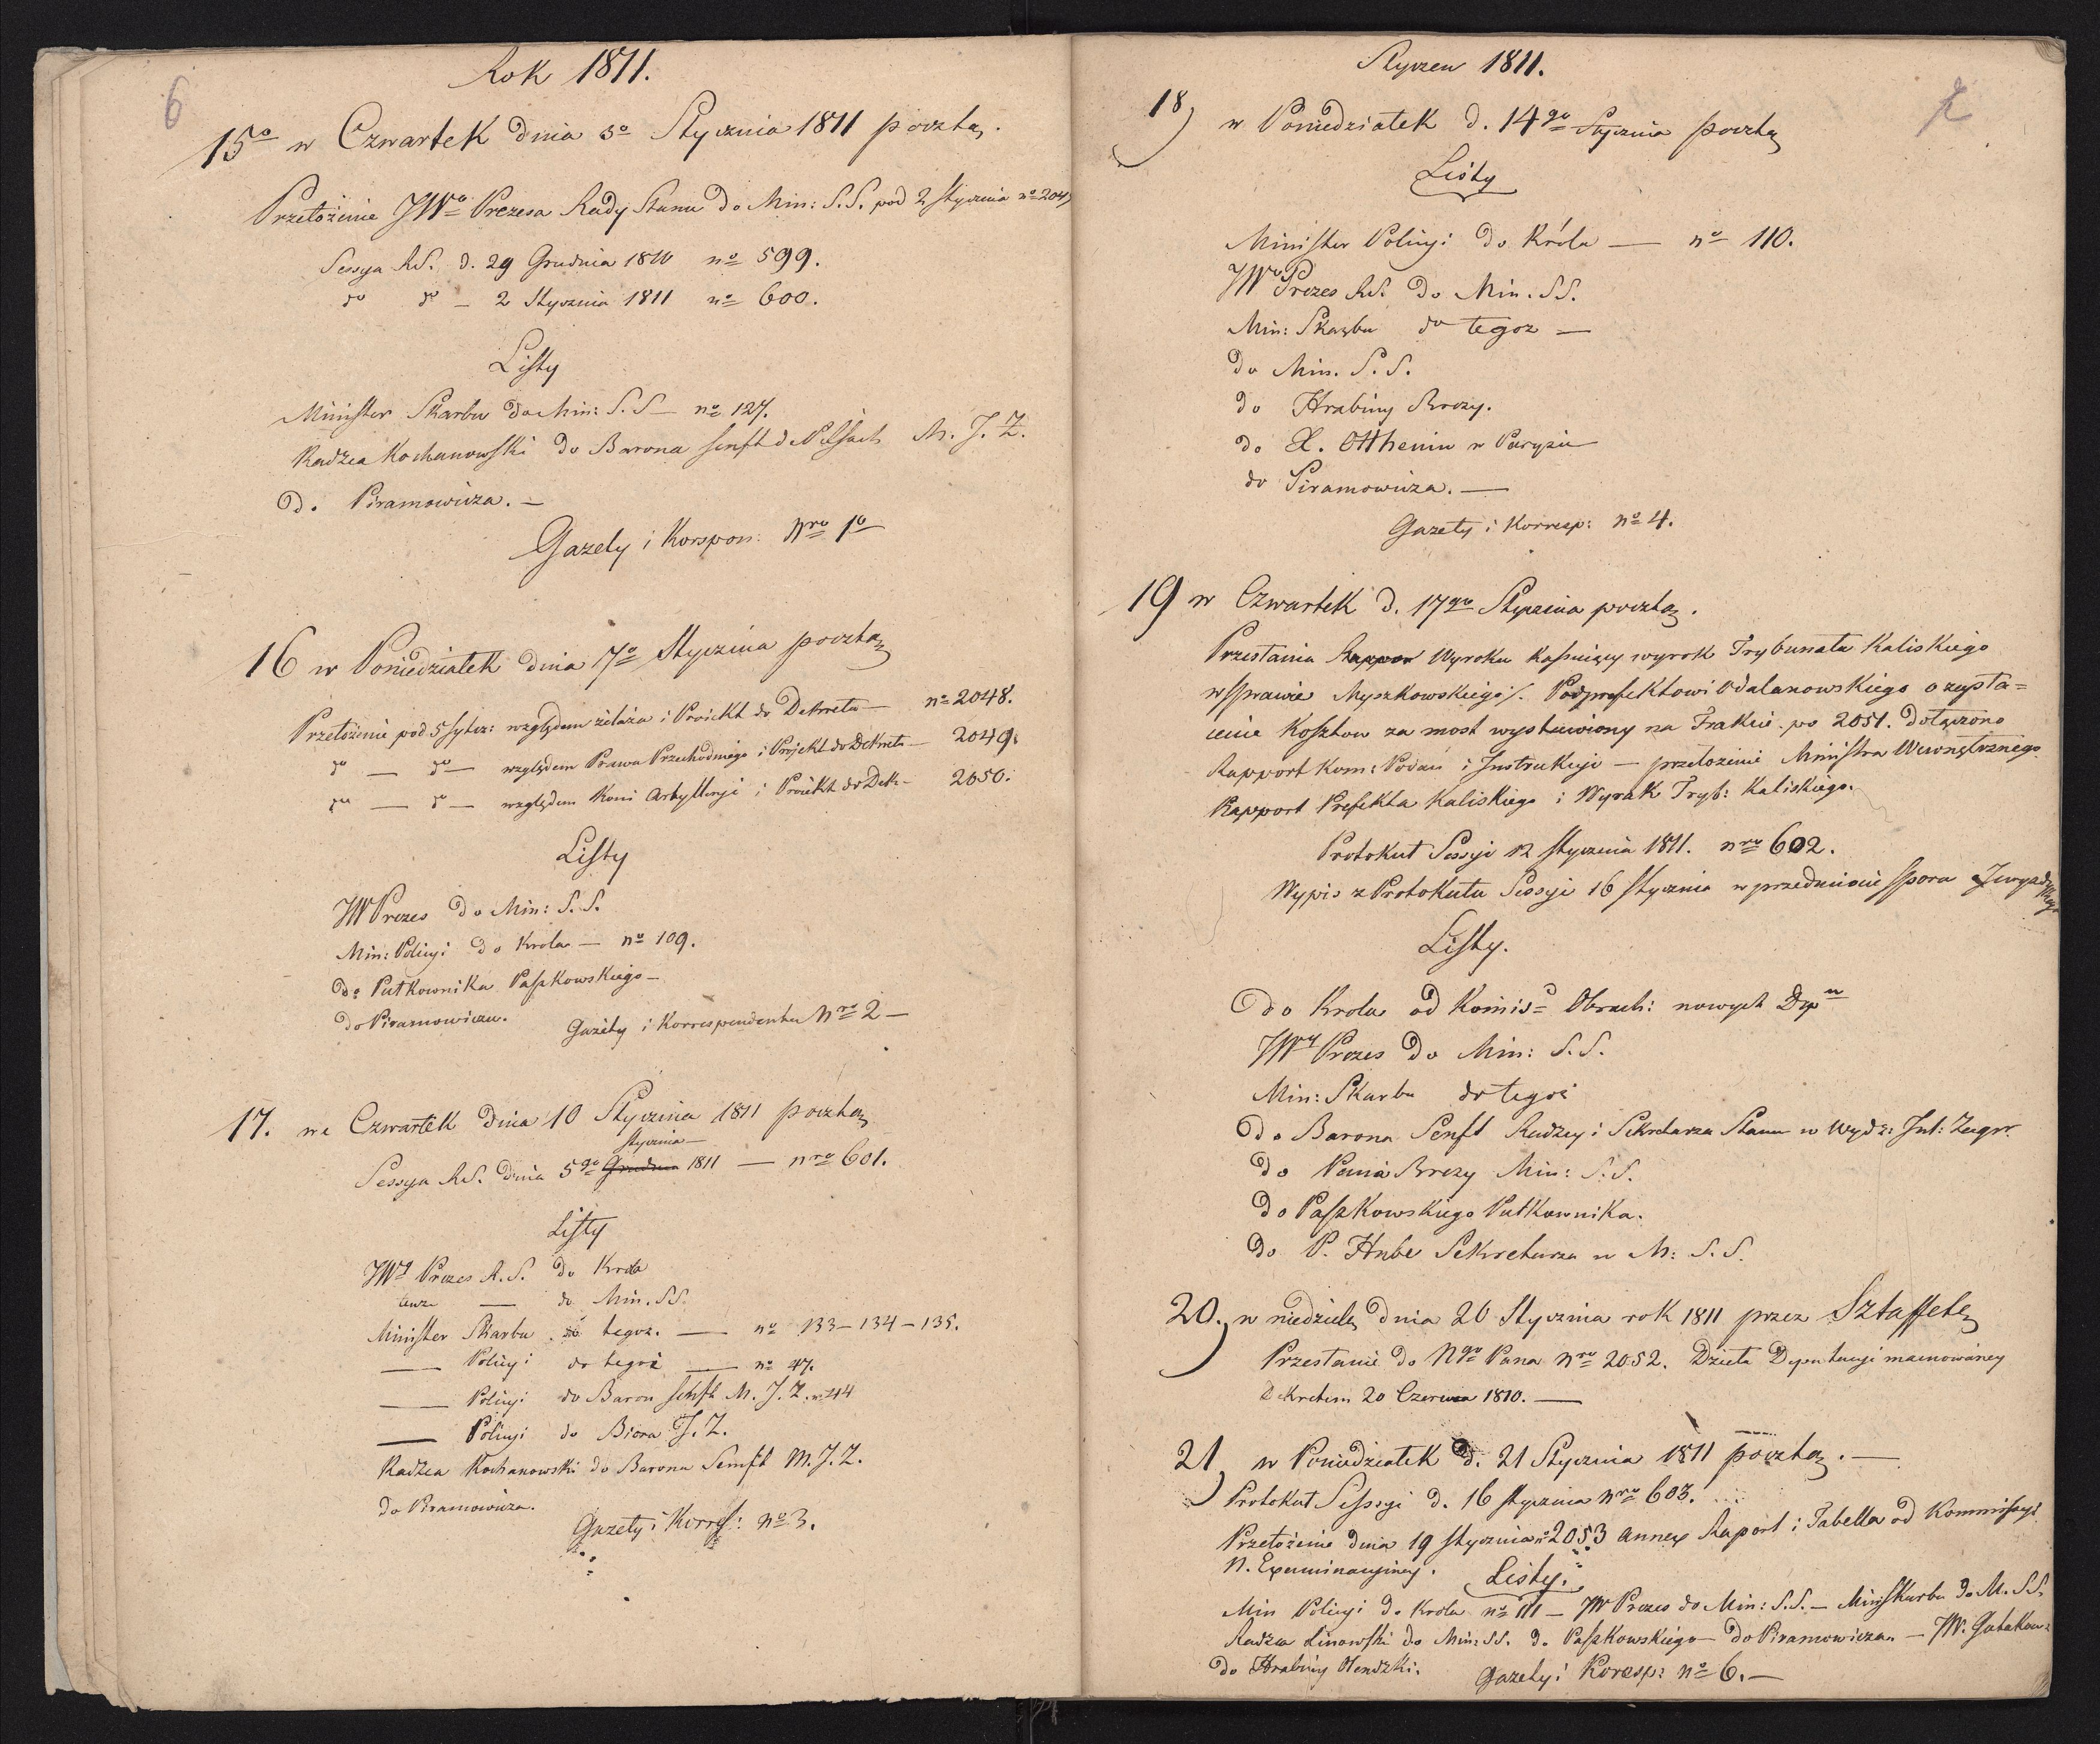 6
Rok 1811.
15º w Czwartek dnia 3º Stycznia 1811 pocztą.
Przełożenie JWº Prezesa Rady Stanu do Min: S.S. pod 2 Stycznia nº 2047
Sessya RS. d. 29 Grudnia 1810 nº 599.
dº dº — 2 Stycznia 1811 nº 600.
Listy
Minister Skarbu do Min: S.S — nº 127.
Radzca Kochanowski do Barona Senft de Pilsach M. J. Z.
Do Piramowicza. —
Gazety i Korspon: Nro 1º
16 w Poniedziałek dnia 7º Stycznia pocztą
Przełożenie pod 5 Stycz: względem żelaza i Proiekt do Dekretu — nº 2048.
dº — dº — względem Prawa Przechodniego i Projekt do Dekretu — 2049.
dº — dº — względem Koni Artylleryi i Proiekt do Dek — 2050.
Listy
JW Prezes do Min: S.S.
Min: Policyi do Krola — nº 109.
do Pułkownika Paszkowskiego —
do Piramowicza. Gazety i Korrespondenta Nro 2 —
17. we Czwartek dnia 10 Stycznia 1811 pocztą
Stycznia —
Sessya RS. dnia 5go Grudnia 1811 — nro 601.
Listy
JWy Prezes R.S. do Krola
tenże — do Min. SS.
Minister Skarbu do tegoz. — nº 133 – 134 – 135.
— Policyi do tegoż — nº 47.
— Policyi do Baron Senft M. J. Z. nº 44
— Policyi do Biora J. Z.
Radzca Kochanowski do Barona Senft M. J. Z.
do Piramowicza.
Gazety i Korresp: nº 3.
Styczen 1811.
18) w Poniedziałek d. 14go Stycznia pocztą
Listy
Minister Policyi do Króla — nº 110.
JWº Prezes RS. do Min. SS.
Min: Skarbu do tegoz —
do Min. S. S.
do Hrabiny Brezy.
do X. Otthenin w Paryżu
do Piramowicza. —
Gazety i Korresp: nº 4.
19 w Czwartek d. 17go Stycznia pocztą.
Przesłania Wyroku kassuiący wyrok Trybunału Kaliskiego
w sprawie Myszkowskiego /. Podprefektowi Odalanowskiego o zapła=
cenie Kosztow za most wystawiony na Trakcie. po 2051. dołączono
Rapport Kom: Podań i Instrukcyi — przełożenie Ministra Wewnętrznego
Rapport Prefekta Kaliskiego i Wyrok Tryb: Kaliskiego.
Protokuł Sessyi 12 Stycznia 1811. nro 602.
Wypis z Protokułu Sessyi 16 Stycznia w przedmiocie Sporu
Listy.
do Krola od Komis= Obrach: nowych Dep
JWy Prezes do Min: S.S.
Min: Skarbu do tegoż
do Barona Senft Radzcy i Sekretarza Stanu w Wydz: Int: Zagr.
do Pana Brezy Min: S.S.
do Paszkowskiego Pułkownika.
do P. Hube Sekretarza w M: S.S.
20.) w niedzielę dnia 20 Stycznia rok 1811 przez Sztaffetę
Przesłanie do Ngo Pana Nro 2052. Dzieła Deputacyi mianowaney
Dekretem 20 Czerwca 1810. —
21) w Poniedziałek d. 21 Stycznia 1811 pocztą. —
Protokuł Sessyi d. 16 Stycznia Nro 603.
Przełożenie dnia 19 Stycznia nº 2053 annex Raport i Tabella od Kommissyi
N. Examinacyiney. Listy.
Min Policyi do Krola nº 111 — JW Prezes do Min: S.S. — Min Skarbu do M. SS.
Radzca Linowski do Min: SS. do Paszkowskiego — do Piramowicza. — JW.
do Hrabiny Gazety i Koresp: nº 6. —